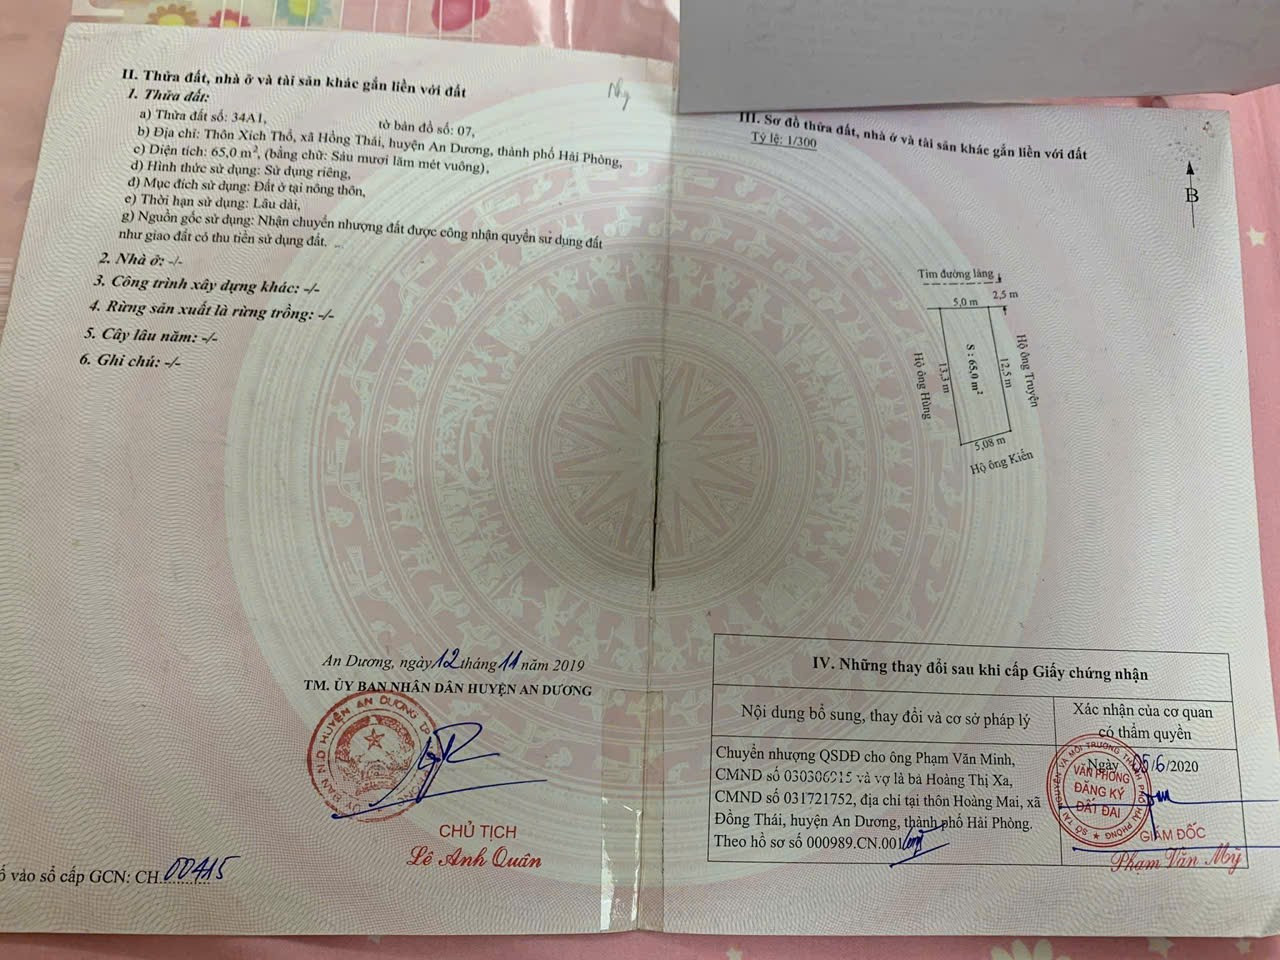 II. Thửa đất, nhà ở và tài sản khác gắn liền với đất
1. Thửa đất:
a) Thửa đất số: 34A1, tờ bản đồ số: 07,
b) Địa chỉ: Thôn Xích Thổ, xã Hồng Thái, huyện An Dương, thành phố Hải Phòng,
c) Diện tích: 65,0 m², (bằng chữ: Sáu mươi lăm mét vuông),
d) Hình thức sử dụng: Sử dụng riêng,
đ) Mục đích sử dụng: Đất ở tại nông thôn,
e) Thời hạn sử dụng: Lâu dài,
g) Nguồn gốc sử dụng: Nhận chuyển nhượng đất được công nhận quyền sử dụng đất
như giao đất có thu tiền sử dụng đất.
2. Nhà ở: -/-
3. Công trình xây dựng khác: -/-
4. Rừng sản xuất là rừng trồng: -/-
5. Cây lâu năm: -/-
6. Ghi chú: -/-
An Dương, ngày 12 tháng 11 năm 2019
TM. ỦY BAN NHÂN DÂN HUYỆN AN DƯƠNG
CHỦ TỊCH
Lê Anh Quân
ố vào sổ cấp GCN: CH.00415
III. Sơ đồ thửa đất, nhà ở và tài sản khác gắn liền với đất
Tỷ lệ: 1/300
B
Tim đường làng
2,5 m
5,0 m
Hộ ông Hùng
13,3 m
S : 65,0 m²
12,5 m
Hộ ông Truyện
5,08 m
Hộ ông Kiển
IV. Những thay đổi sau khi cấp Giấy chứng nhận
Nội dung bổ sung, thay đổi và cơ sở pháp lý
Xác nhận của cơ quan
có thẩm quyền
Chuyển nhượng QSDĐ cho ông Phạm Văn Minh,
CMND số 030306915 và vợ là bà Hoàng Thị Xa,
CMND số 031721752, địa chỉ tại thôn Hoàng Mai, xã
Đồng Thái, huyện An Dương, thành phố Hải Phòng.
Theo hồ sơ số 000989.CN.001
Ngày 05/6/2020
VĂN PHÒNG
ĐĂNG KÝ
ĐẤT ĐAI
SỞ TÀI NGUYÊN VÀ MÔI TRƯỜNG THÀNH PHỐ HẢI PHÒNG
GIÁM ĐỐC
Phạm Văn Mỹ